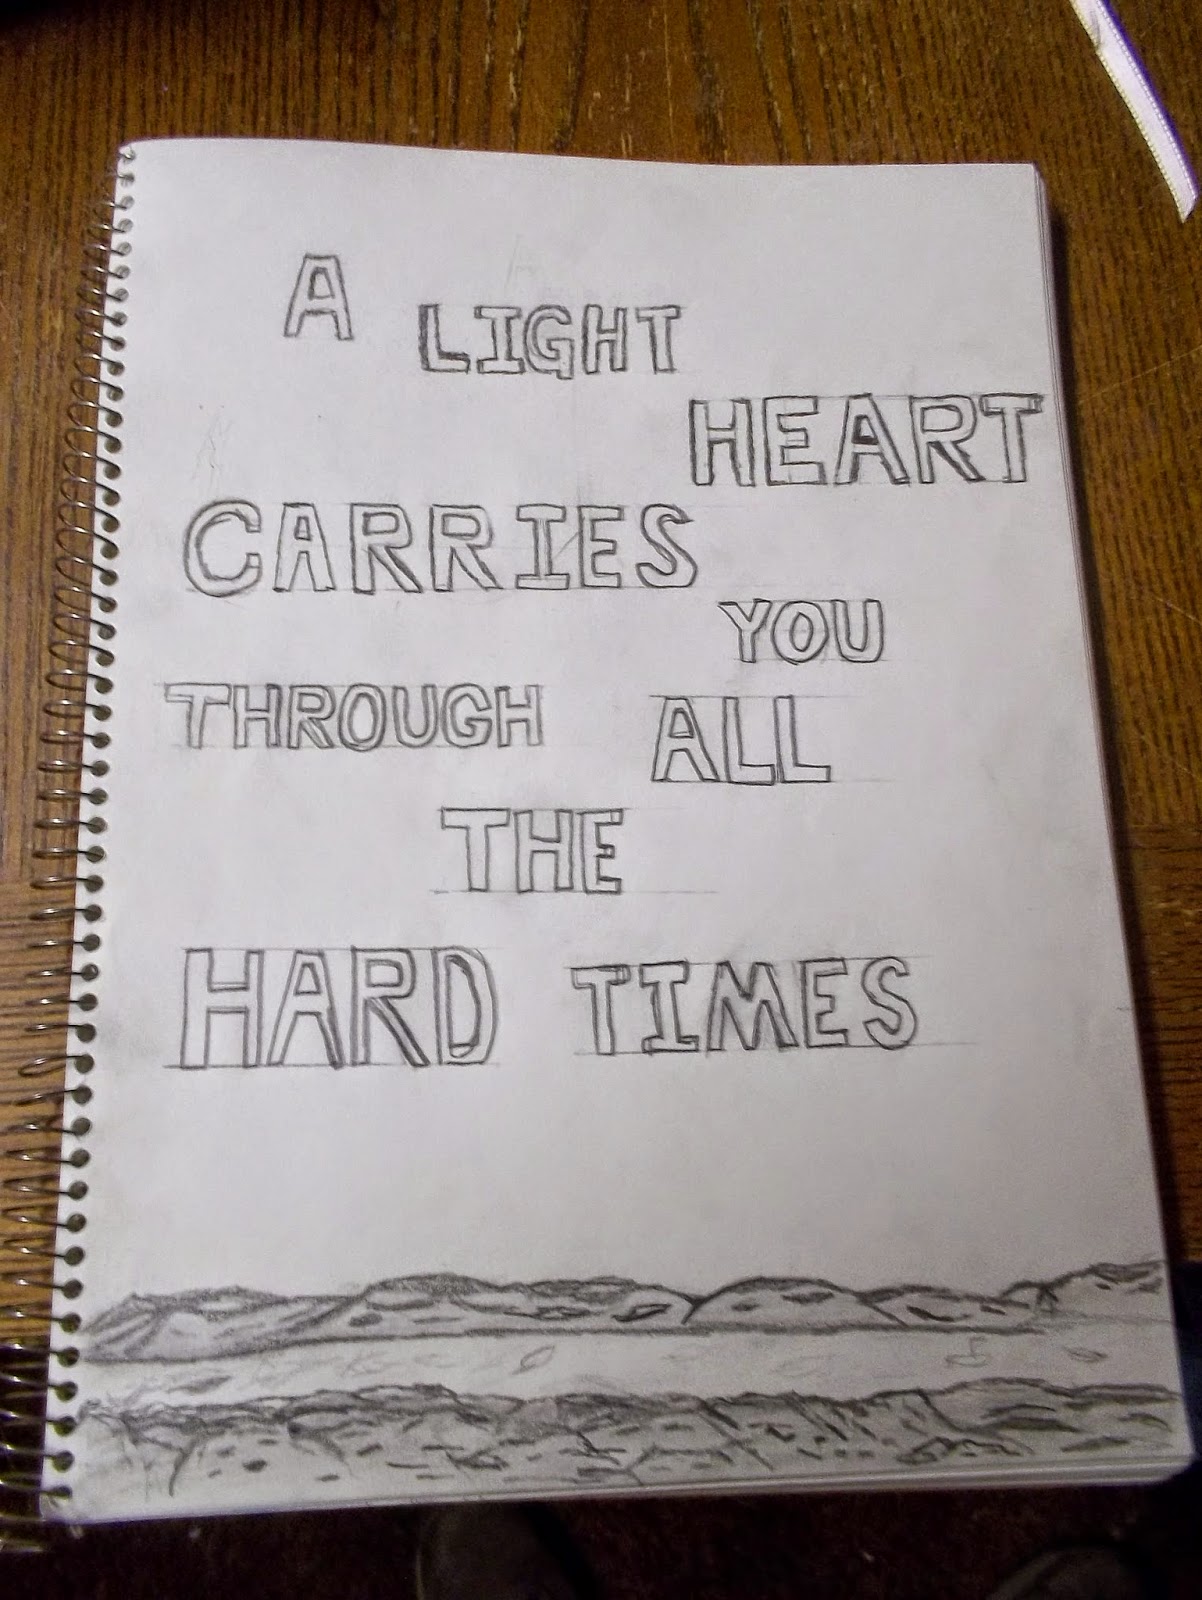 A LIGHT
HEART
CARRIES
YOU
THROUGH ALL
THE
HARD TIMES